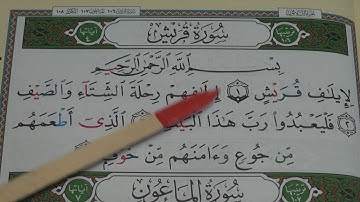 سُورَةُ قُرَيْشٍ
بِسْمِ اللَّهِ الرَّحْمَٰنِ الرَّحِيمِ
لِإِيلَٰفِ قُرَيْشٍ ١ إِۦلَٰفِهِمْ رِحْلَةَ الشِّتَآءِ وَالصَّيْفِ
٢ فَلْيَعْبُدُوا۟ رَبَّ هَٰذَا الْبَيْتِ ٣ الَّذِىٓ أَطْعَمَهُم
مِّن جُوعٍ وَءَامَنَهُم مِّنْ خَوْفٍۭ
سُورَةُ الْمَاعُونِ